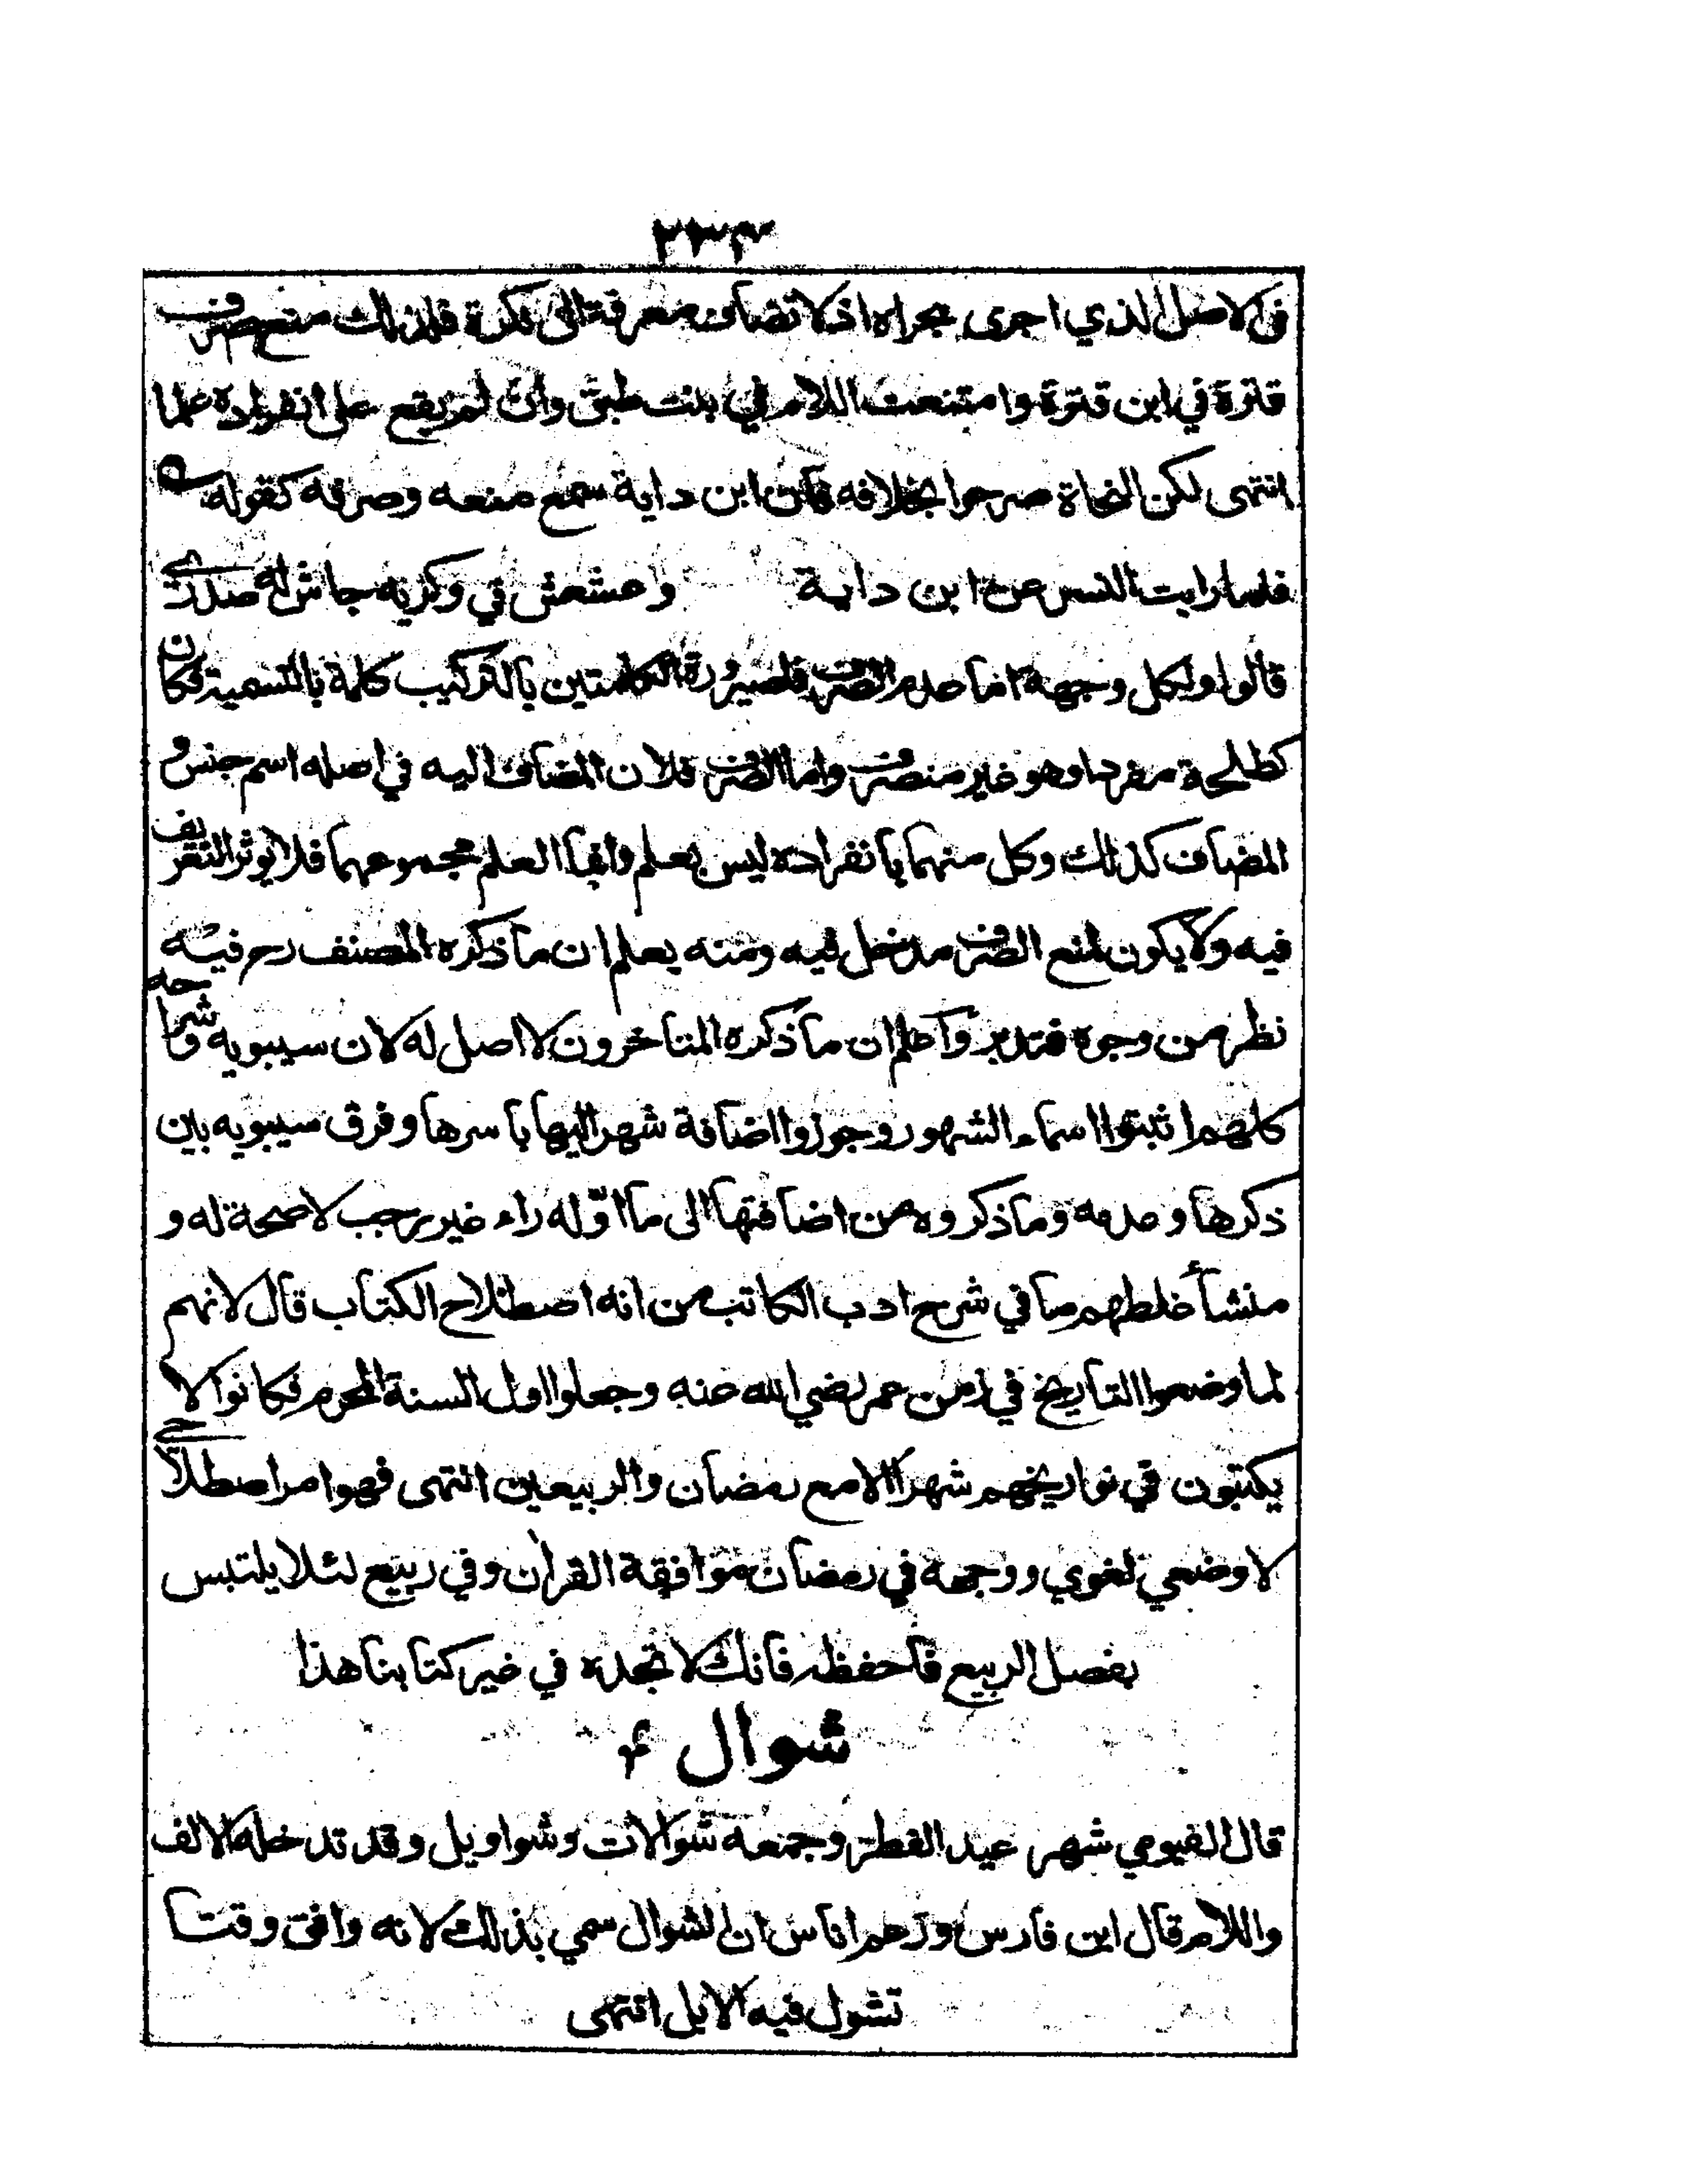 ٣٣٣
في الاصل الذي اجرى مجراه اذ لا تضاف معرفة الى نكرة فلذلك منع صرف
قترة في ابن قترة وامتنعت اللام في بنت طبق وان لم يقع على انفراده علما
انتهى لكن النحاة صرحوا بخلافه فان ابن داية سمع منعه وصرفه كقوله
فلما رايت النسر عز ابن داية وعشعش في وكريه جاش له صدرى
قالوا ولكل وجهة اما عدم الصرف فلصيرورة الكلمتين بالتركيب كلمة بالتسمية فكان
كطلحة مفردا وهو غير منصرف واما الصرف فلان المضاف اليه في اصله اسم جنس و
المضاف كذلك وكل منهما بانفراده ليس بعلم وانما العلم مجموعهما فلا يوثر التعريف
فيه ولا يكون لمنع الصرف مدخل فيه ومنه يعلم ان ما ذكره المصنف رح فيه
نظر من وجوه فتدبر واعلم ان ما ذكره المتاخرون لا اصل له لان سيبويه وشراحه
كلهم اثبتوا اسماء الشهور وجوزوا اضافة شهر اليها باسرها وفرق سيبويه بين
ذكرها وعدمه وما ذكروه من اضافتها الى ما اوّله راء غير رجب لا صحة له و
منشأ غلطهم ما في شرح ادب الكاتب من انه اصطلاح الكتاب قال لانهم
لما وضعوا التاريخ في زمن عمر رضي الله عنه وجعلوا اول السنة المحرم فكانوا لا
يكتبون في تواريخهم شهرا الا مع رمضان والربيعين انتهى فهو امر اصطلاحي
لا وضعي لغوي ووجهه في رمضان موافقة القرآن وفي ربيع لئلا يلتبس
بفصل الربيع فاحفظه فانك لا تجده في غير كتابنا هذا
شوال
قال الفيومي شهر عيد الفطر وجمعه شوالات وشواويل وقد تدخله الالف
واللام قال ابن فارس وزعم اناس ان الشوال سمي بذلك لانه وافق وقتا
تشول فيه الابل انتهى